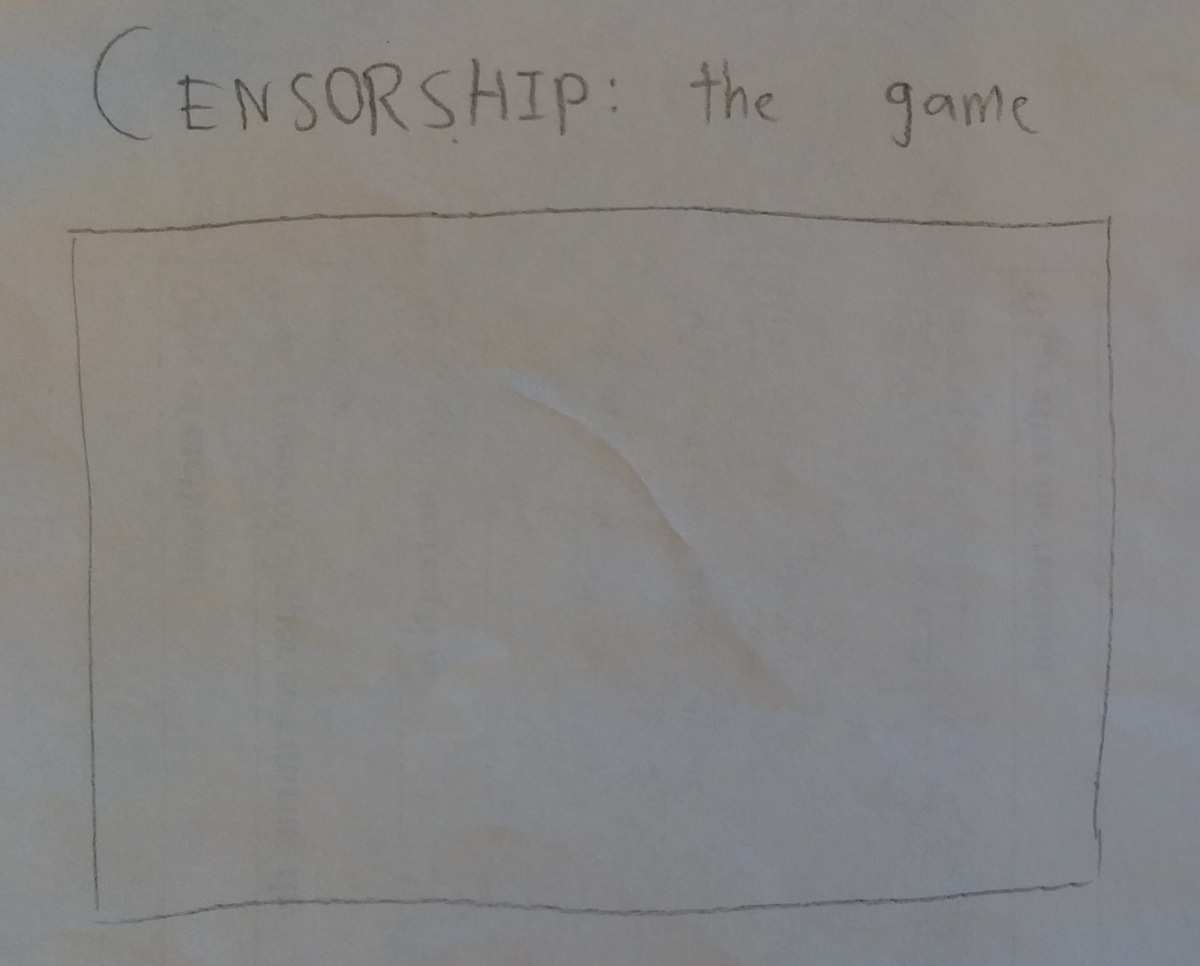 CENSORSHIP: the game